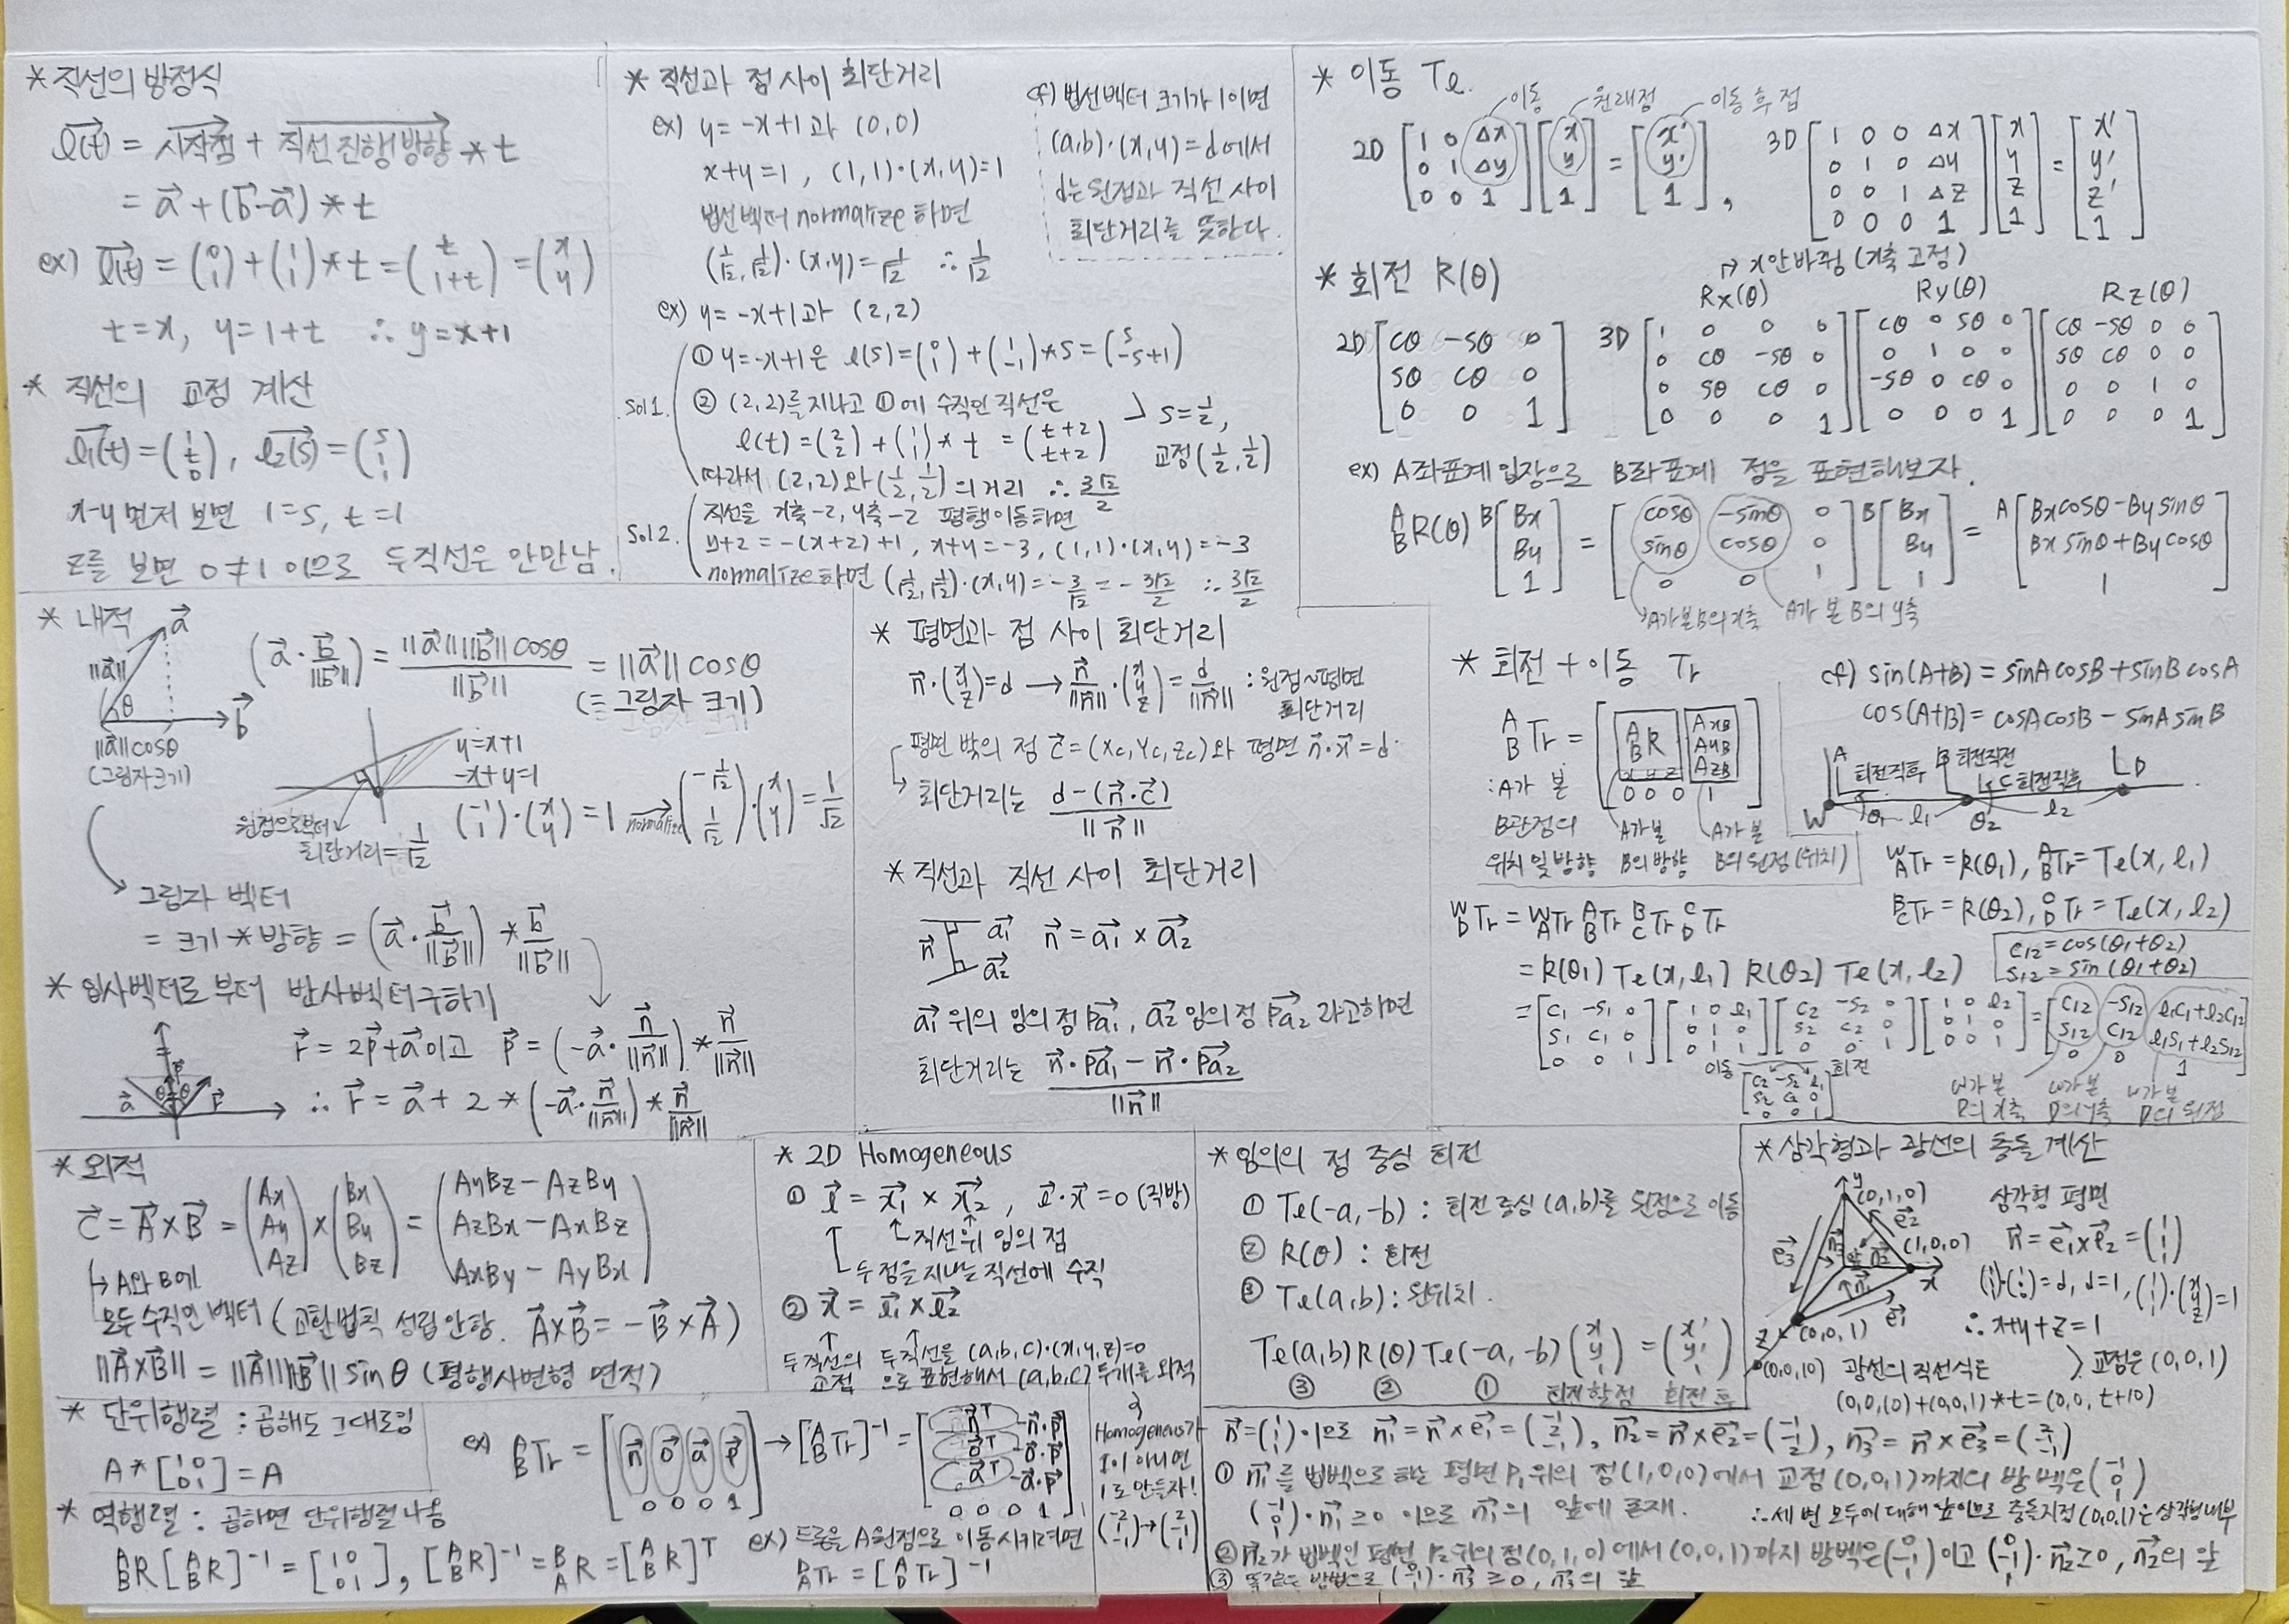 * 직선의 방정식
l(t) = 시작점 + 직선 진행방향 * t
= a + (b-a) * t
ex) l(t) = (0 1) + (1 1) * t = (t 1+t) = (x y)
t=x, y=1+t ∴ y=x+1
* 직선의 교점 계산
l₁(t) = (1 t 0), l₂(s) = (s 1 1)
x-y 먼저 보면 1=s, t=1
z를 보면 0≠1 이므로 두 직선은 안만남.
* 직선과 점 사이 최단거리
ex) y=-x+1과 (0,0)
x+y=1, (1,1)·(x,y)=1
법선벡터 normalize 하면
(1/√2, 1/√2)·(x,y)=1/√2 ∴ 1/√2
cf) 법선벡터 크기가 1이면
(a,b)·(x,y)=d에서
d는 원점과 직선 사이
최단거리를 뜻한다.
ex) y=-x+1과 (2,2)
sol1.
① y=-x+1은 l(s)=(0 1)+(1 -1)*s=(s -s+1)
② (2,2)를 지나고 ①에 수직인 직선은
l(t)=(2 2)+(1 1)*t=(t+2 t+2)
s=1/2,
교점(1/2,1/2)
따라서 (2,2)와 (1/2,1/2)의 거리 ∴ 3√2/2
sol2.
직선을 x축-2, y축-2 평행이동하면
y+2=-(x+2)+1, x+y=-3, (1,1)·(x,y)=-3
normalize하면 (1/√2,1/√2)·(x,y)=-3/√2=-3√2/2 ∴ 3√2/2
* 이동 Te.
이동 원래점 이동 후 점
2D [1 0 Δx; 0 1 Δy; 0 0 1] [x; y; 1] = [x'; y'; 1],
3D [1 0 0 Δx; 0 1 0 Δy; 0 0 1 Δz; 0 0 0 1] [x; y; z; 1] = [x'; y'; z'; 1]
* 회전 R(θ)
↱ x안바뀜 (x축 고정)
Rx(θ) Ry(θ) Rz(θ)
2D [cθ -sθ 0; sθ cθ 0; 0 0 1]
3D [1 0 0 0; 0 cθ -sθ 0; 0 sθ cθ 0; 0 0 0 1] [cθ 0 sθ 0; 0 1 0 0; -sθ 0 cθ 0; 0 0 0 1] [cθ -sθ 0 0; sθ cθ 0 0; 0 0 1 0; 0 0 0 1]
ex) A좌표계 입장으로 B좌표계 점을 표현해보자.
A B R(θ) B[Bx; By; 1] = [cosθ -sinθ 0; sinθ cosθ 0; 0 0 1] B[Bx; By; 1] = A[Bxcosθ-Bysinθ; Bxsinθ+Bycosθ; 1]
A가 본 B의 x축 A가 본 B의 y축
* 내적
a
||a||
θ
b
||a||cosθ
(그림자크기)
(a·b/||b||) = ||a||||b||cosθ / ||b|| = ||a||cosθ
(≡그림자 크기)
y=x+1
-x+y=1
(-1 1)·(x y)=1 normalize→ (-1/√2 1/√2)·(x y)=1/√2
원점으로부터
최단거리=1/√2
그림자 벡터
= 크기*방향 = (a·b/||b||) * b/||b||
* 입사벡터로 부터 반사벡터구하기
r = 2p+a이고 p = (-a·n/||n||) * n/||n||
∴ r = a + 2*(-a·n/||n||) * n/||n||
a n p r θ θ
* 평면과 점 사이 최단거리
n·(x y z)=d → n/||n||·(x y z)=d/||n|| : 원점~평면
최단거리
평면 밖의 점 c=(xc,yc,zc)와 평면 n·x=d
최단거리는 d-(n·c) / ||n||
* 직선과 직선 사이 최단거리
n a₁ a₂ n = a₁ × a₂
a₁ 위의 임의 점Pa₁, a₂ 임의 점 Pa₂ 라고하면
최단거리는 n·Pa₁ - n·Pa₂ / ||n||
* 회전 + 이동 Tr
A B Tr = [A B R AxB AyB AzB; 0 0 0 1]
x y z
:A가 본
B관점의
위치 및 방향
A가 본
B의 방향
A가 본
B의 원점(위치)
cf) sin(A+B) = sinAcosB+sinBcosA
cos(A+B) = cosAcosB - sinAsinB
A 회전직후 B 회전직전 C회전직후 D
W θ₁ l₁ θ₂ l₂
W A Tr = R(θ₁), A B Tr = Te(x, l₁)
B C Tr = R(θ₂), C D Tr = Te(x, l₂)
W D Tr = W A Tr A B Tr B C Tr C D Tr
= R(θ₁) Te(x, l₁) R(θ₂) Te(x, l₂)
c12=cos(θ₁+θ₂)
s12=sin(θ₁+θ₂)
= [c1 -s1 0; s1 c1 0; 0 0 1] [1 0 l1; 0 1 0; 0 1 1] [c2 -s2 0; s2 c2 0; 0 0 1] [1 0 l2; 0 1 0; 0 0 1] = [c12 -s12 l1c1+l2c12; s12 c12 l1s1+l2s12; 0 0 1]
이동 회전
[c2 -s2 l1; s2 c2 0; 0 0 1]
W가 본
D의 x축
W가 본
D의 y축
W가 본
D의 원점
* 외적
C = A×B = (Ax Ay Az) × (Bx By Bz) = (AyBz-AzBy AzBx-AxBz AxBy-AyBx)
↳ A와 B에
모두 수직인 벡터 (교환법칙 성립 안함. A×B = -B×A)
||A×B|| = ||A||||B|| sinθ (평행사변형 면적)
* 2D Homogeneous
① l = x₁ × x₂, l·x=0 (직방)
직선위 임의 점
두점을 지나는 직선에 수직
② x = l₁ × l₂
두직선의 교점
두직선을 (a,b,c)·(x,y,z)=0
으로 표현해서 (a,b,c) 두개를 외적
Homogeneous가
1이 아니면
1로 만들자!
(-2 1 -1)→(2 -1 1)
* 임의의 점 중심 회전
① Te(-a,-b) : 회전 중심 (a,b)를 원점으로 이동
② R(θ) : 회전
③ Te(a,b) : 원위치.
Te(a,b)R(θ)Te(-a,-b)(x y 1) = (x' y' 1)
③ ② ① 회전할점 회전 후
* 단위행렬 : 곱해도 그대로임
A*[1 0; 0 1]=A
* 역행렬 : 곱하면 단위행렬 나옴
A B R [A B R]⁻¹ = [1 0; 0 1], [A B R]⁻¹ = B A R = [A B R]ᵀ
ex) A B Tr = [n o a p; 0 0 0 1] → [A B Tr]⁻¹ = [nᵀ -n·p; oᵀ -o·p; aᵀ -a·p; 0 0 0 1]
ex) 드론을 A원점으로 이동시키려면
D A Tr = [A D Tr]⁻¹
* 삼각형과 광선의 충돌 계산
y (0,1,0) e₂ (1,0,0) x e₃ n₃ n₂ n₁ e₁ z (0,0,1) (0,0,10)
삼각형 평면
n = e₁×e₂ = (1 1 1)
∴ x+y+z=1
광선의 직선식은
(0,0,10)+(0,0,1)*t=(0,0,t+10)
교점은 (0,0,1)
① n₁를 법벡으로 하는 평면 P₁위의 점(1,0,0)에서 교점(0,0,1)까지의 방벡은(-1 0 1)
(-1 0 1)·n₁ ≥0 이므로 n₁의 앞에 존재.
∴ 세 변 모두에 대해 앞이므로 충돌지점 (0,0,1)은 삼각형내부
② n₂가 법벡인 평면 P₂위의 점(0,1,0)에서 (0,0,1)까지 방벡은(0 -1 1)이고 (0 -1 1)·n₂≥0, n₂의 앞